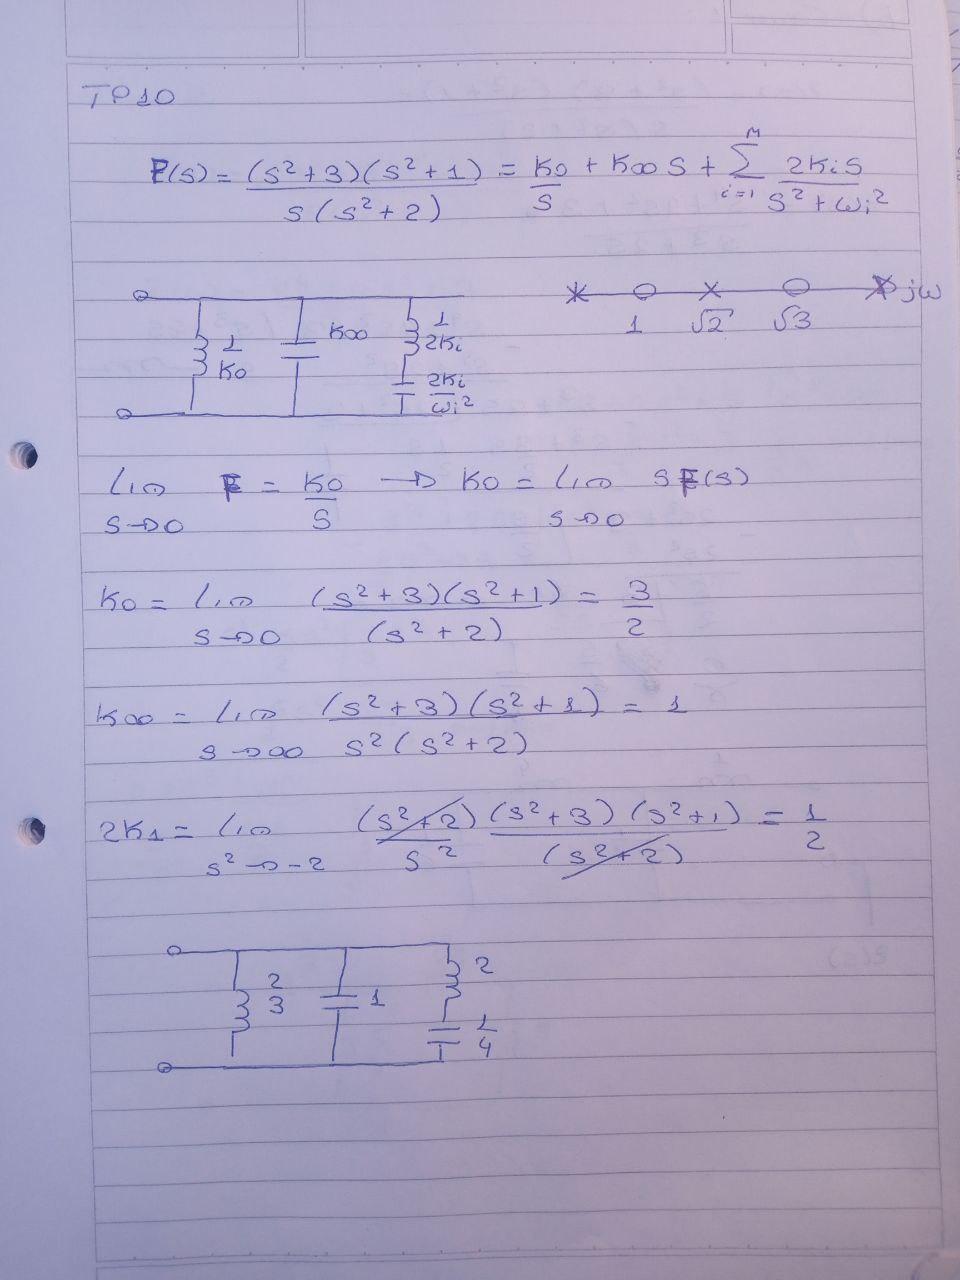 TP10
F(s) = (s²+3)(s²+1) / s(s²+2) = K0/s + K∞ s + Σ_{i=1}^{M} 2Kis / s²+ωi²
1/K0 K∞ 1/2Ki 2Ki/ωi²
1 √2 √3 jω
Lim_{s→0} F = K0/s → K0 = Lim_{s→0} sF(s)
K0 = Lim_{s→0} (s²+3)(s²+1) / (s²+2) = 3/2
K∞ = Lim_{s→∞} (s²+3)(s²+1) / s²(s²+2) = 1
2K1 = Lim_{s²→-2} (s²+2)/s² (s²+3)(s²+1) / (s²+2) = 1/2
2/3 1 2 1/4